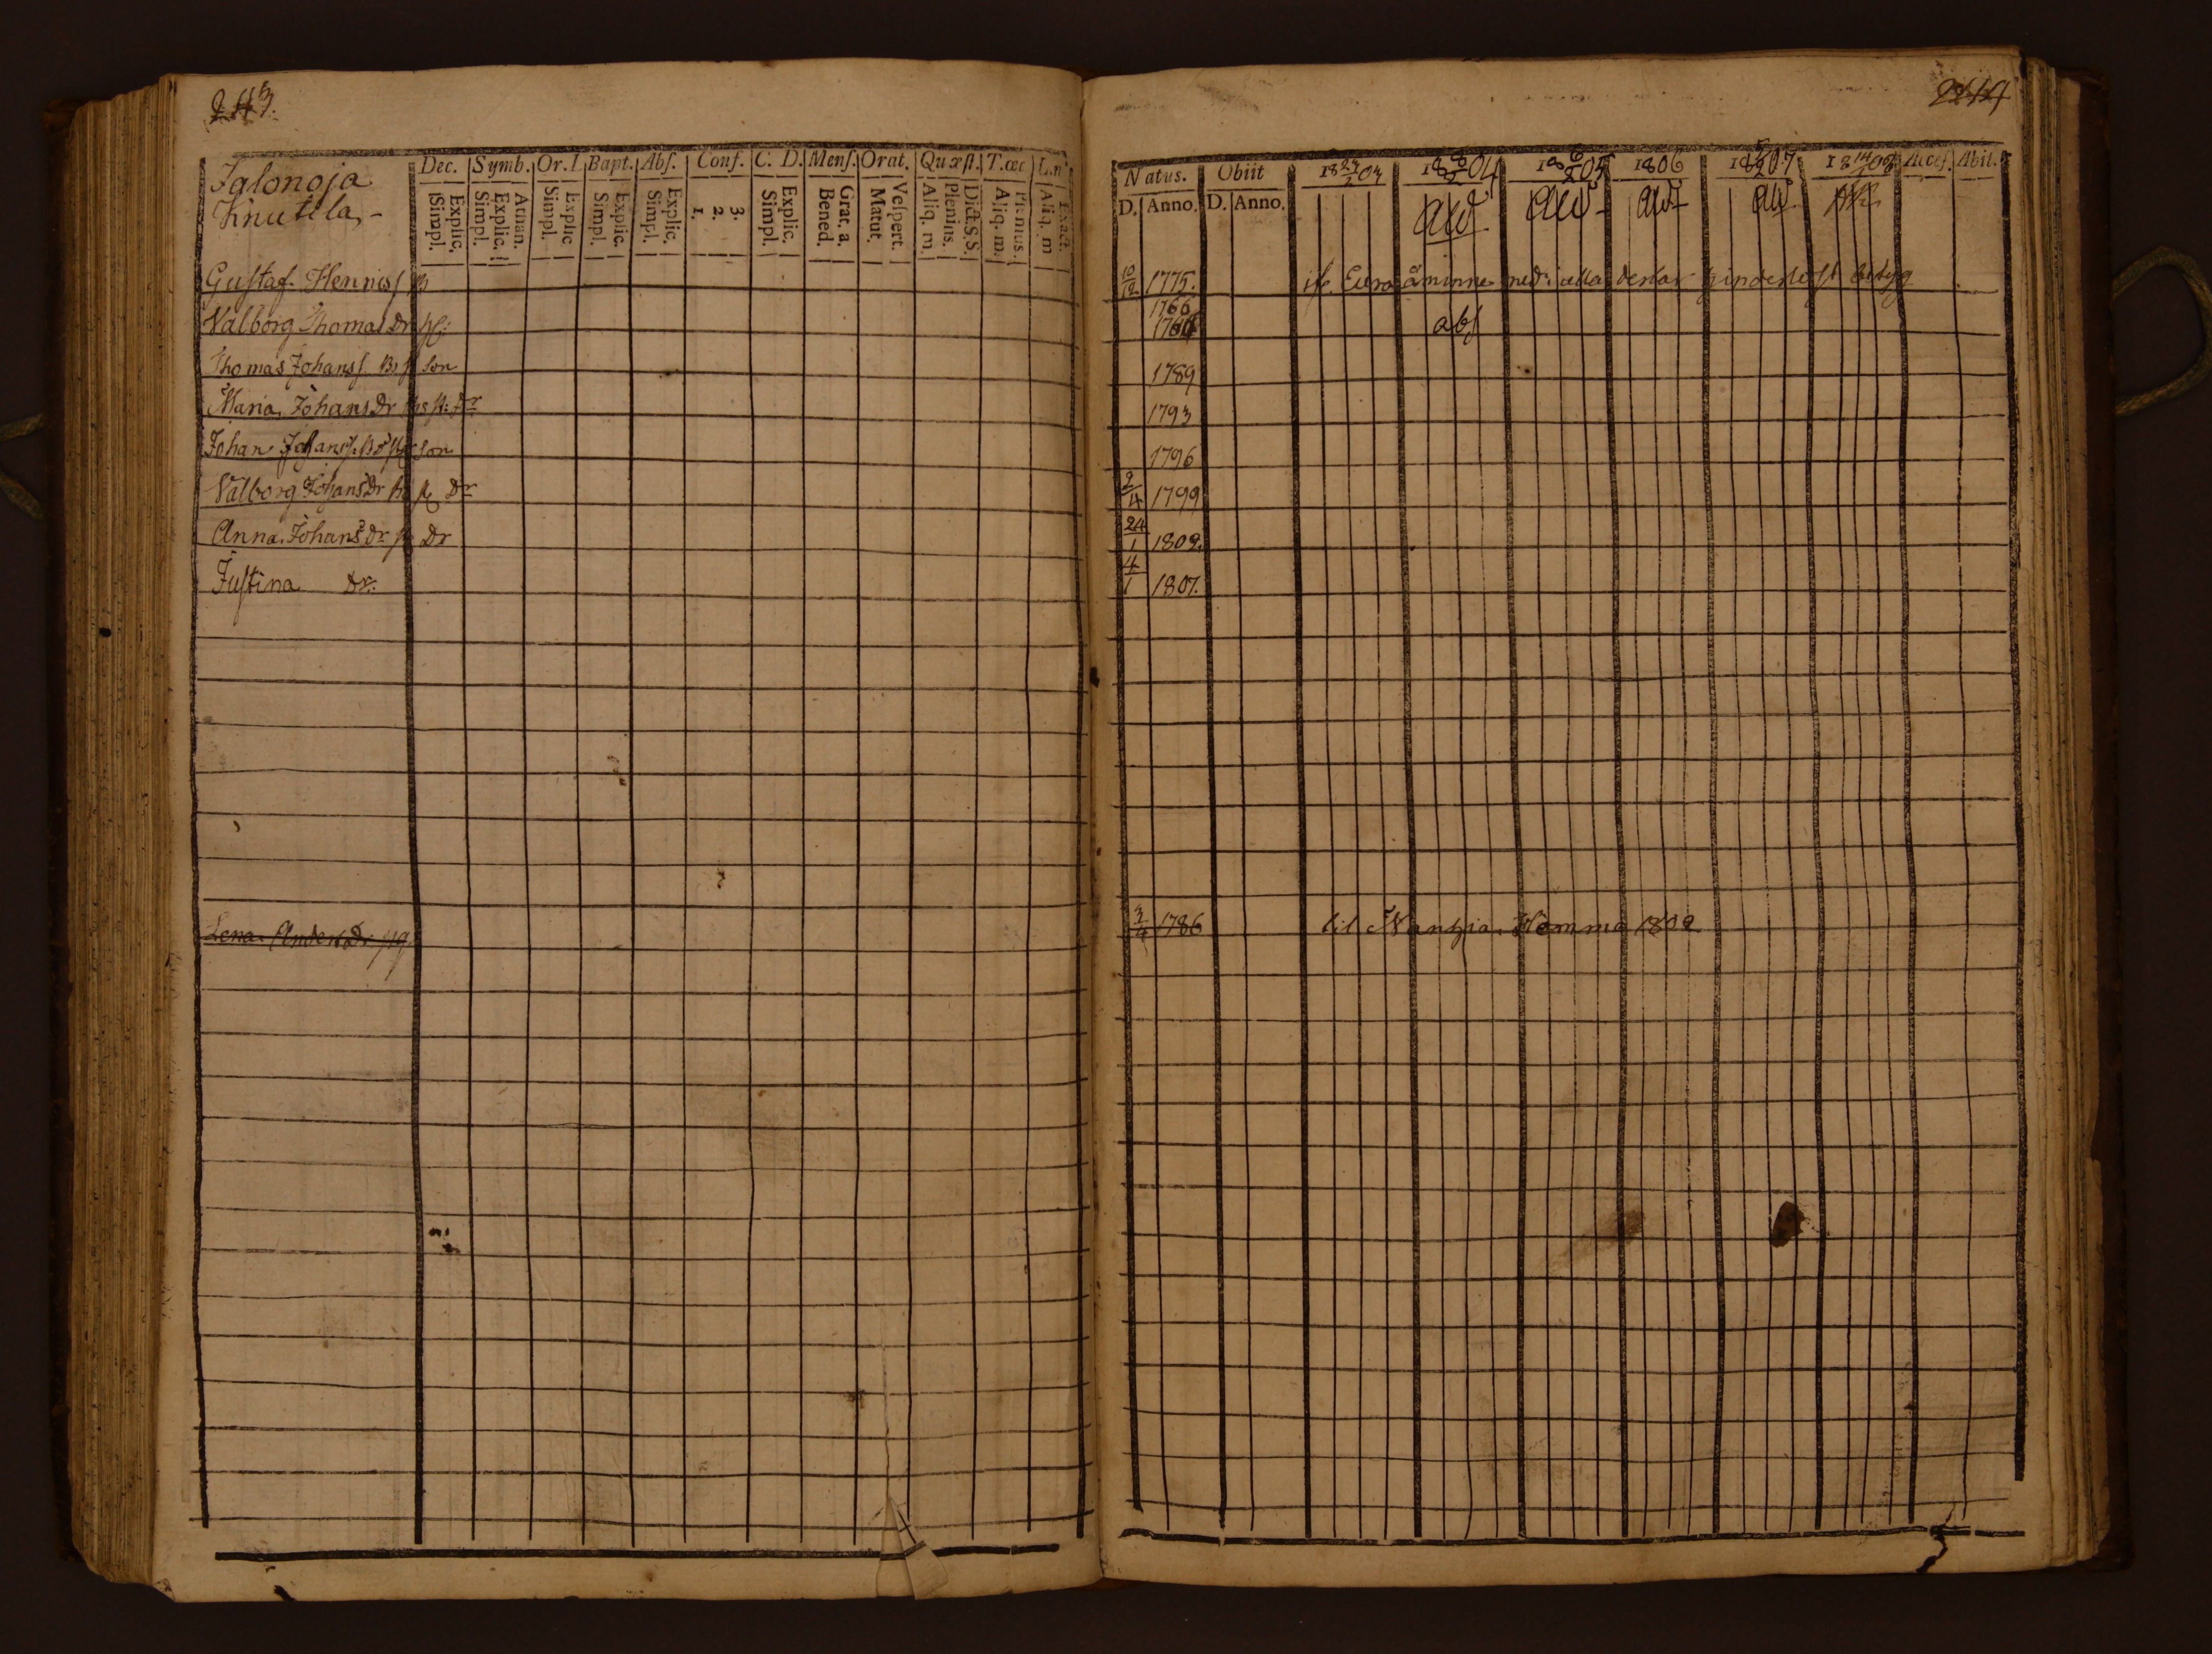 243.
Jalonoja
Knutila
Dec. Symb. Or. I. Bapt. Abſ. Conf. C. D. Menſ. Orat. Quæſt. T. œc L. n
Explic. Simpl. Athan. Explic. Simpl. Explic Simpl. Explic. Simpl. Explic. Simpl. 3. 2. 1. Explic. Simpl. Grat. a. Bened. Veſpert. Matut. Dict. S. S. Plenius. Aliq. m. Plenius. Aliq. m. Exact. Aliq. m
Gustaf Henricss B
Valborg Thomas Dr H:
Thomas Johanss. Bs H son
Maria Johans Dr Bs H: Dr
Johan Johanss. Bs H son
Valborg Johans Dr Bs H Dr
Anna Johans Dr H Dr
Justina Dr.
Lena Anders Dr pig
244
Natus. Obiit 18 24/2 03 18 04 18 6/2 05 1806 18 5/2 07 18 14/2 08 Acceſ. Abit.
D. Anno. D. Anno.
aw aw aw aw
10/12 1775. Eura åminne
1766
abs
1789
1793
1796
2/4 1799
24/1 1802.
4/1 1807.
3/4 1786 til Hemma 1802